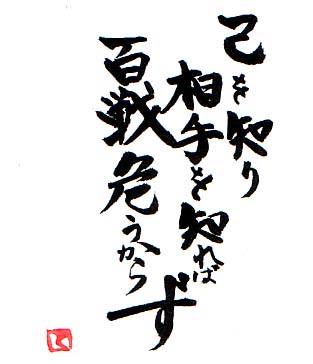 己を知り
相手を知れば
百戦危うからず